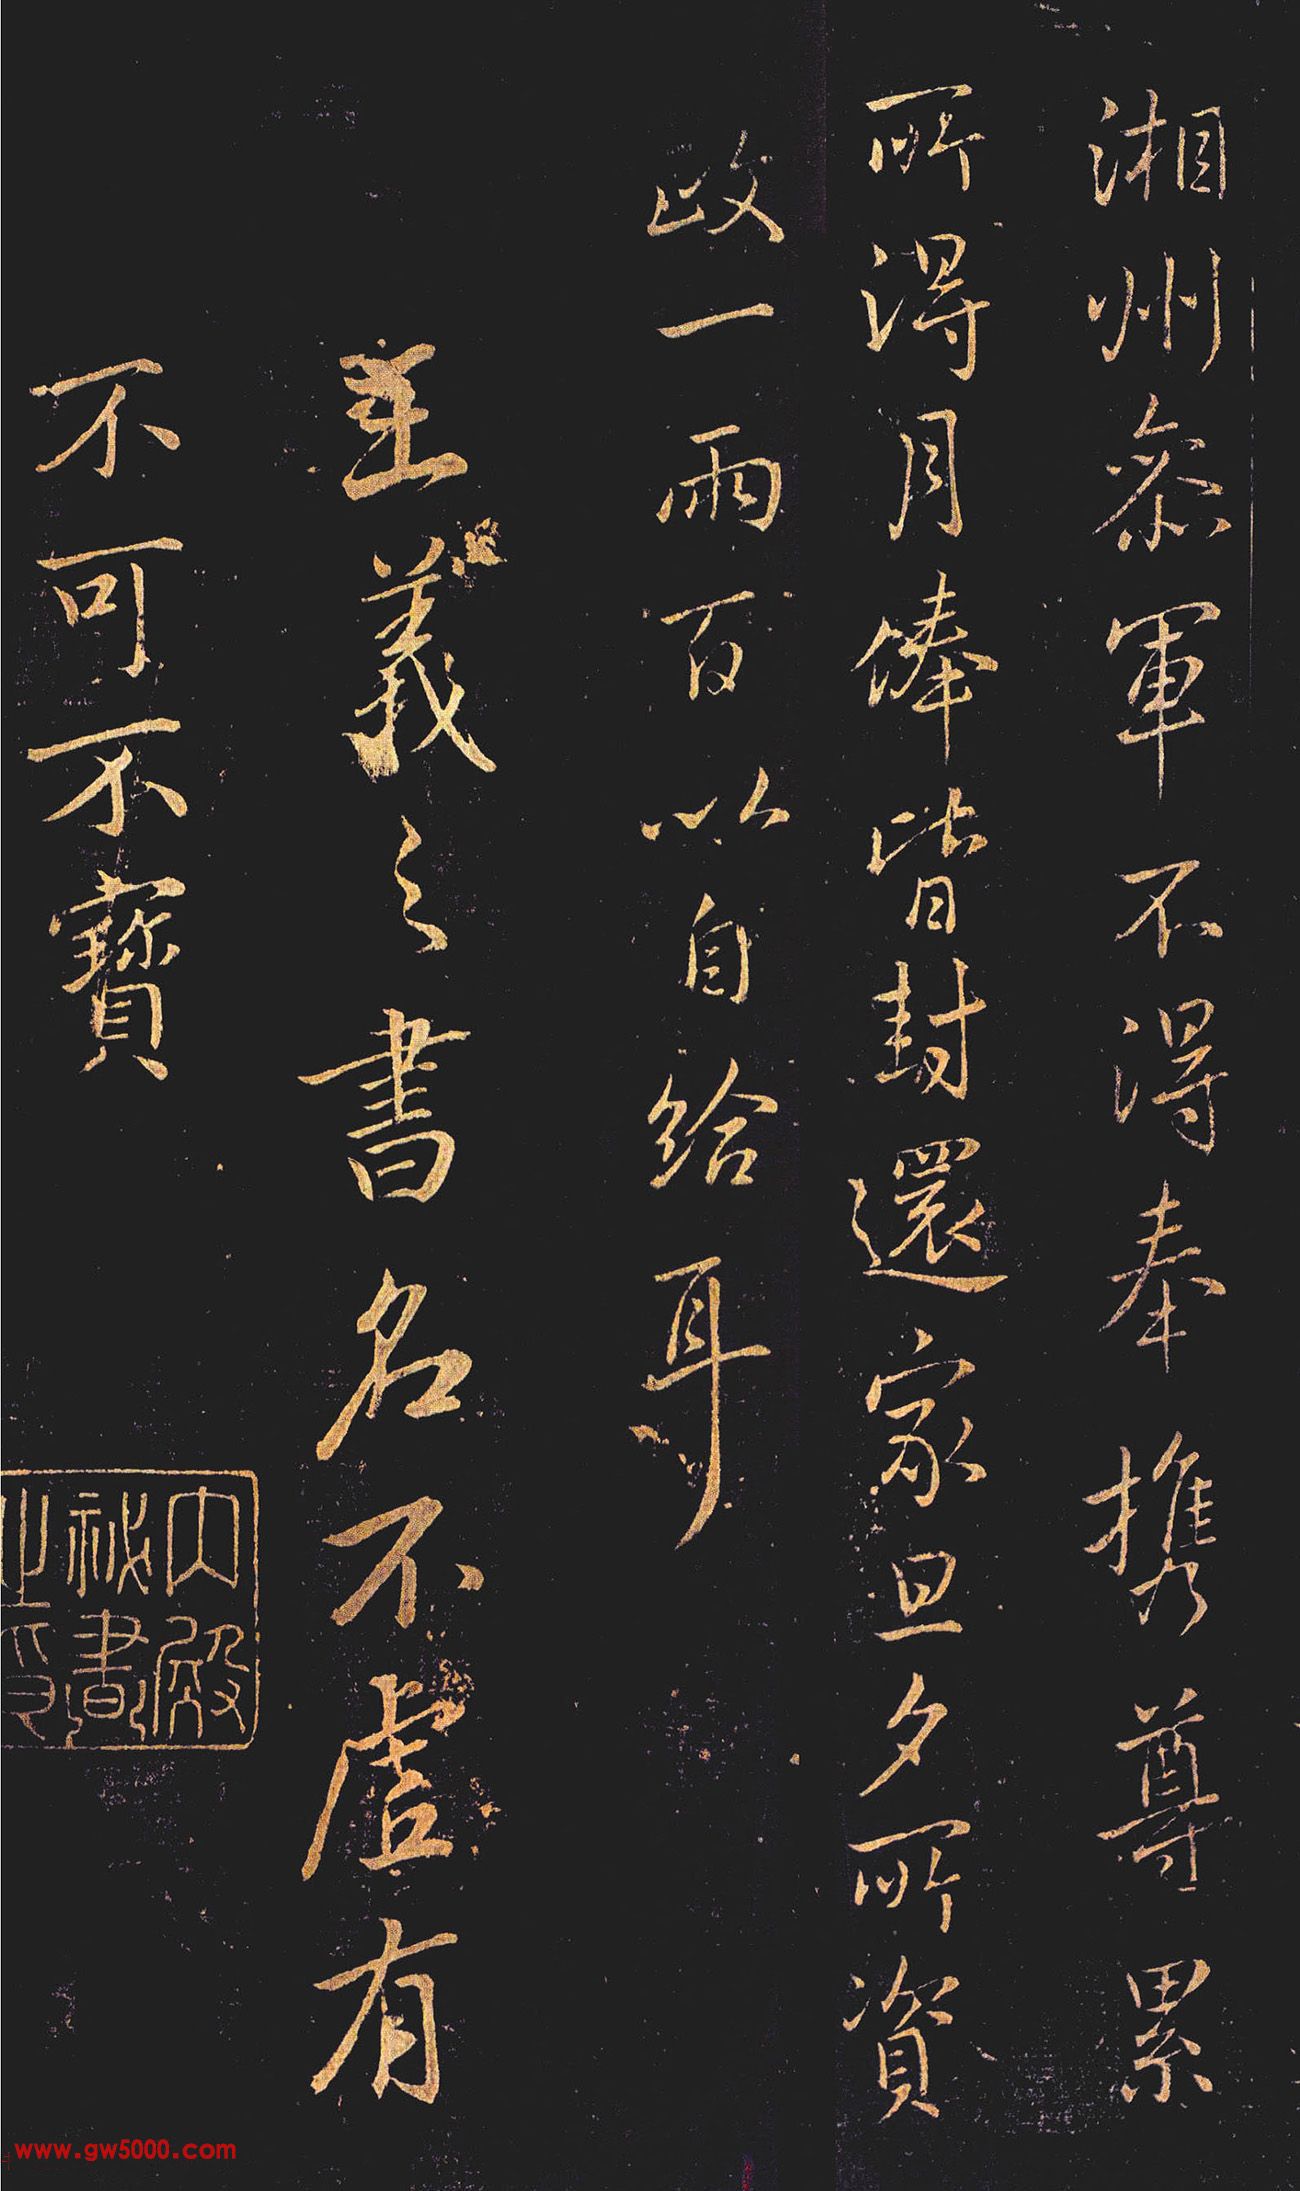 湘州參軍不得奉携尊累
所得月俸皆封還家旦夕所資
政一兩百以自給耳
羲之書名不虛有
不可不寶
內殿
秘書
之印
www.gw5000.com